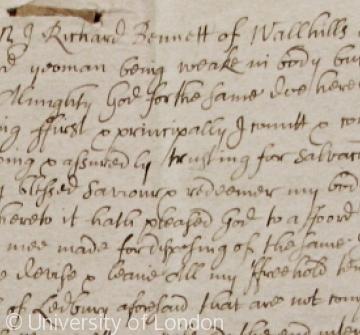 I Richard Bennett of Wallhills
yeoman being weake in body but
Almighty God for the same doe here
ffirst & principally I comitt & com
& assuredly trusting for salvac
blessed Saviour & redeemer my bod
hereto it hath pleased God to afoord
mee made for disposing of the same
devise & leave all my ffreehold
of Ledbury aforesaid that are not
© University of London